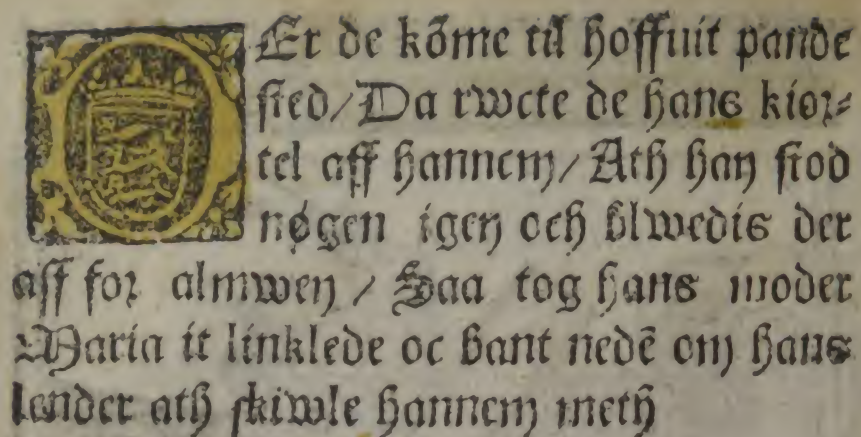 OEr de kõme til hoffuit pande
sted/Da rwcte de hans kior⸗
tel aff hannem/Ath han stod
nøgen igen och blwedis der
aff for almwen/Saa tog hans moder
Maria it linklede oc bant nedẽ om hans
lender ath skiwle hannem meth